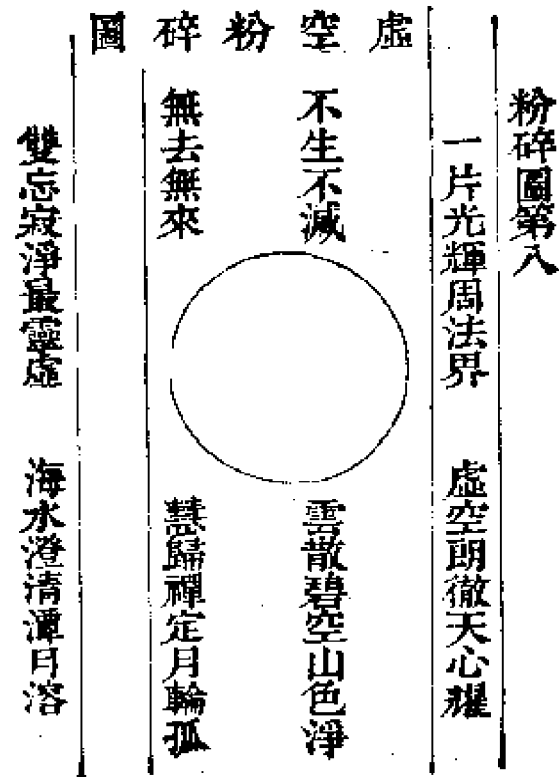 粉碎圖第八
虛空粉碎圖
一片光輝周法界
虛空朗徹天心耀
不生不滅
無去無來
雲散碧空山色淨
慧歸禪定月輪孤
雙忘寂淨最靈虛
海水澄清潭月溶